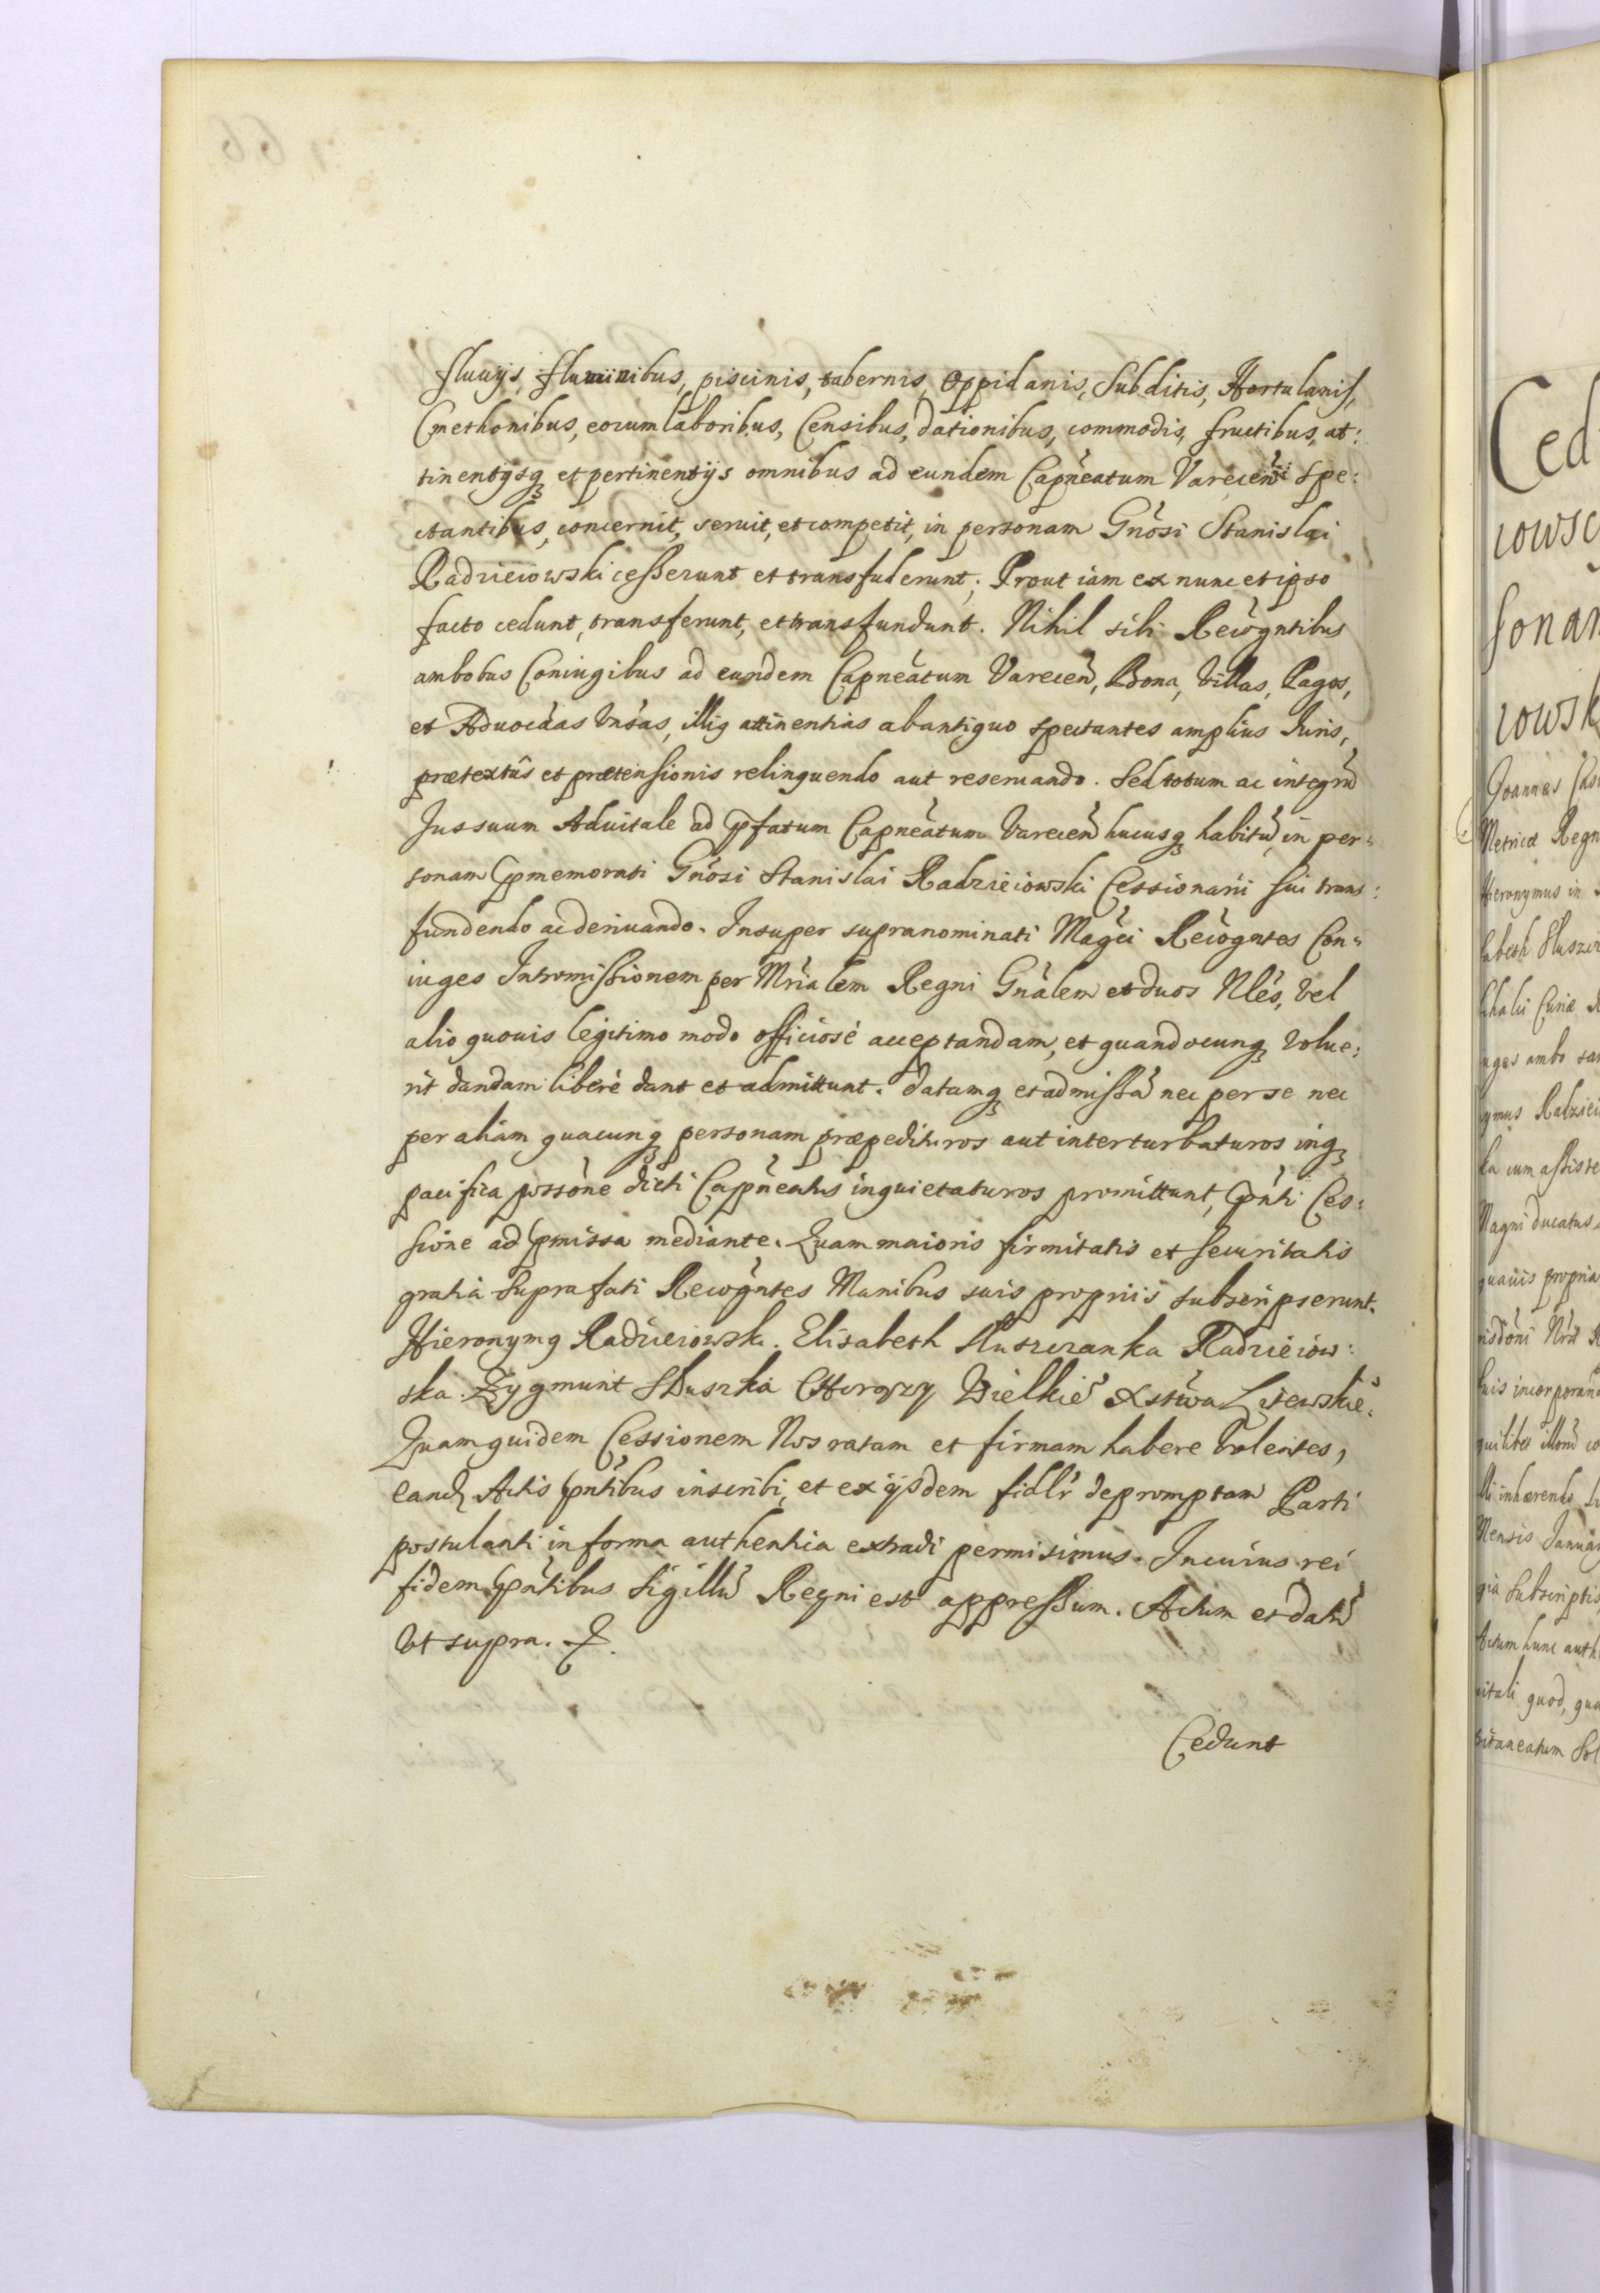 fluuÿs, fluminibus, piscinis, tabernis, Oppidanis, Subditis, Hortulanis,
Cmethonibus, eorum laboribus, Censibus, dationibus, commodis, fructibus, at:
tinentÿsq et pertinentÿs omnibus ad eundem Capneatum Varecen̄ spe:
ctantibus, concernit, seruit, et competit, in personam Gnosi Stanislai
Radzieiowski cesserunt et transfuderunt; Prout iam ex nunc et ipso
facto cedunt, transferunt, et transfundunt. Nihil sibi Recogntibus
ambobus Coniugibus ad eundem Capneatum Varecen̄, Bona, Villas, Pagos,
et Aduocaas Vnsas, illis attinentias ab antiquo spectantes amplius Iuris,
prætextûs et prætensionis relinquendo aut reseruando. Sed totum ac integrū
Jus suum Aduitale ad pfatum Capneatum Varecen̄ hucusq habitū, in per=
sonam pmemorati Gnosi Stanislai Radzieiowski Cessionarii sui trans:
fundendo ac deriuando. Insuper supranominati Magci Recogntes Con=
iuges Intromissionem per Mrialem Regni Gnalem et duos Nles, Vel
alio quouis legitimo modo officiosé acceptandam, et quandocunq Volue:
rit dandam liberè dant et admittunt. datamq et admissā nec per se nec
per aliam quacunq personam præpedituros aut interturbaturos inq
pacifica possōne dicti Capneatus inquietaturos promittunt, pnti Ces:
sione ad pmissa mediante. Quam maioris firmitatis et securitatis
gratia Suprafati Recogntes Manibus suis propriis subscripserunt.
Hieronymq Radzieiowski. Elisabeth Sluszczanka Radzieiow:
ska. Zygmunt Sluszka Chorązy Wielkie Xstwa Litewskie.
Quam quidem Cessionem Nos ratam et firmam habere Volentes,
eand Actis pntibus inscribi, et ex ÿsdem fidlr depromptam Parti
postulanti in forma authentica extradi permisimus. In cuius rei
fidem pntibus Sigillū Regni est appressum. Actum et datū
Vt supra.
Cedunt
Ced
iowsc
sonam
iowsk
Joannes Cas
Metricæ Regn
Hieronymus in
sabeth Sluszcz
ymus Radziei
ka cum assiste
Magni ducatus
Mensis Januar
gia Subscriptis
Actum hunc auth
vitali quod, qua
pitaneatum Sol